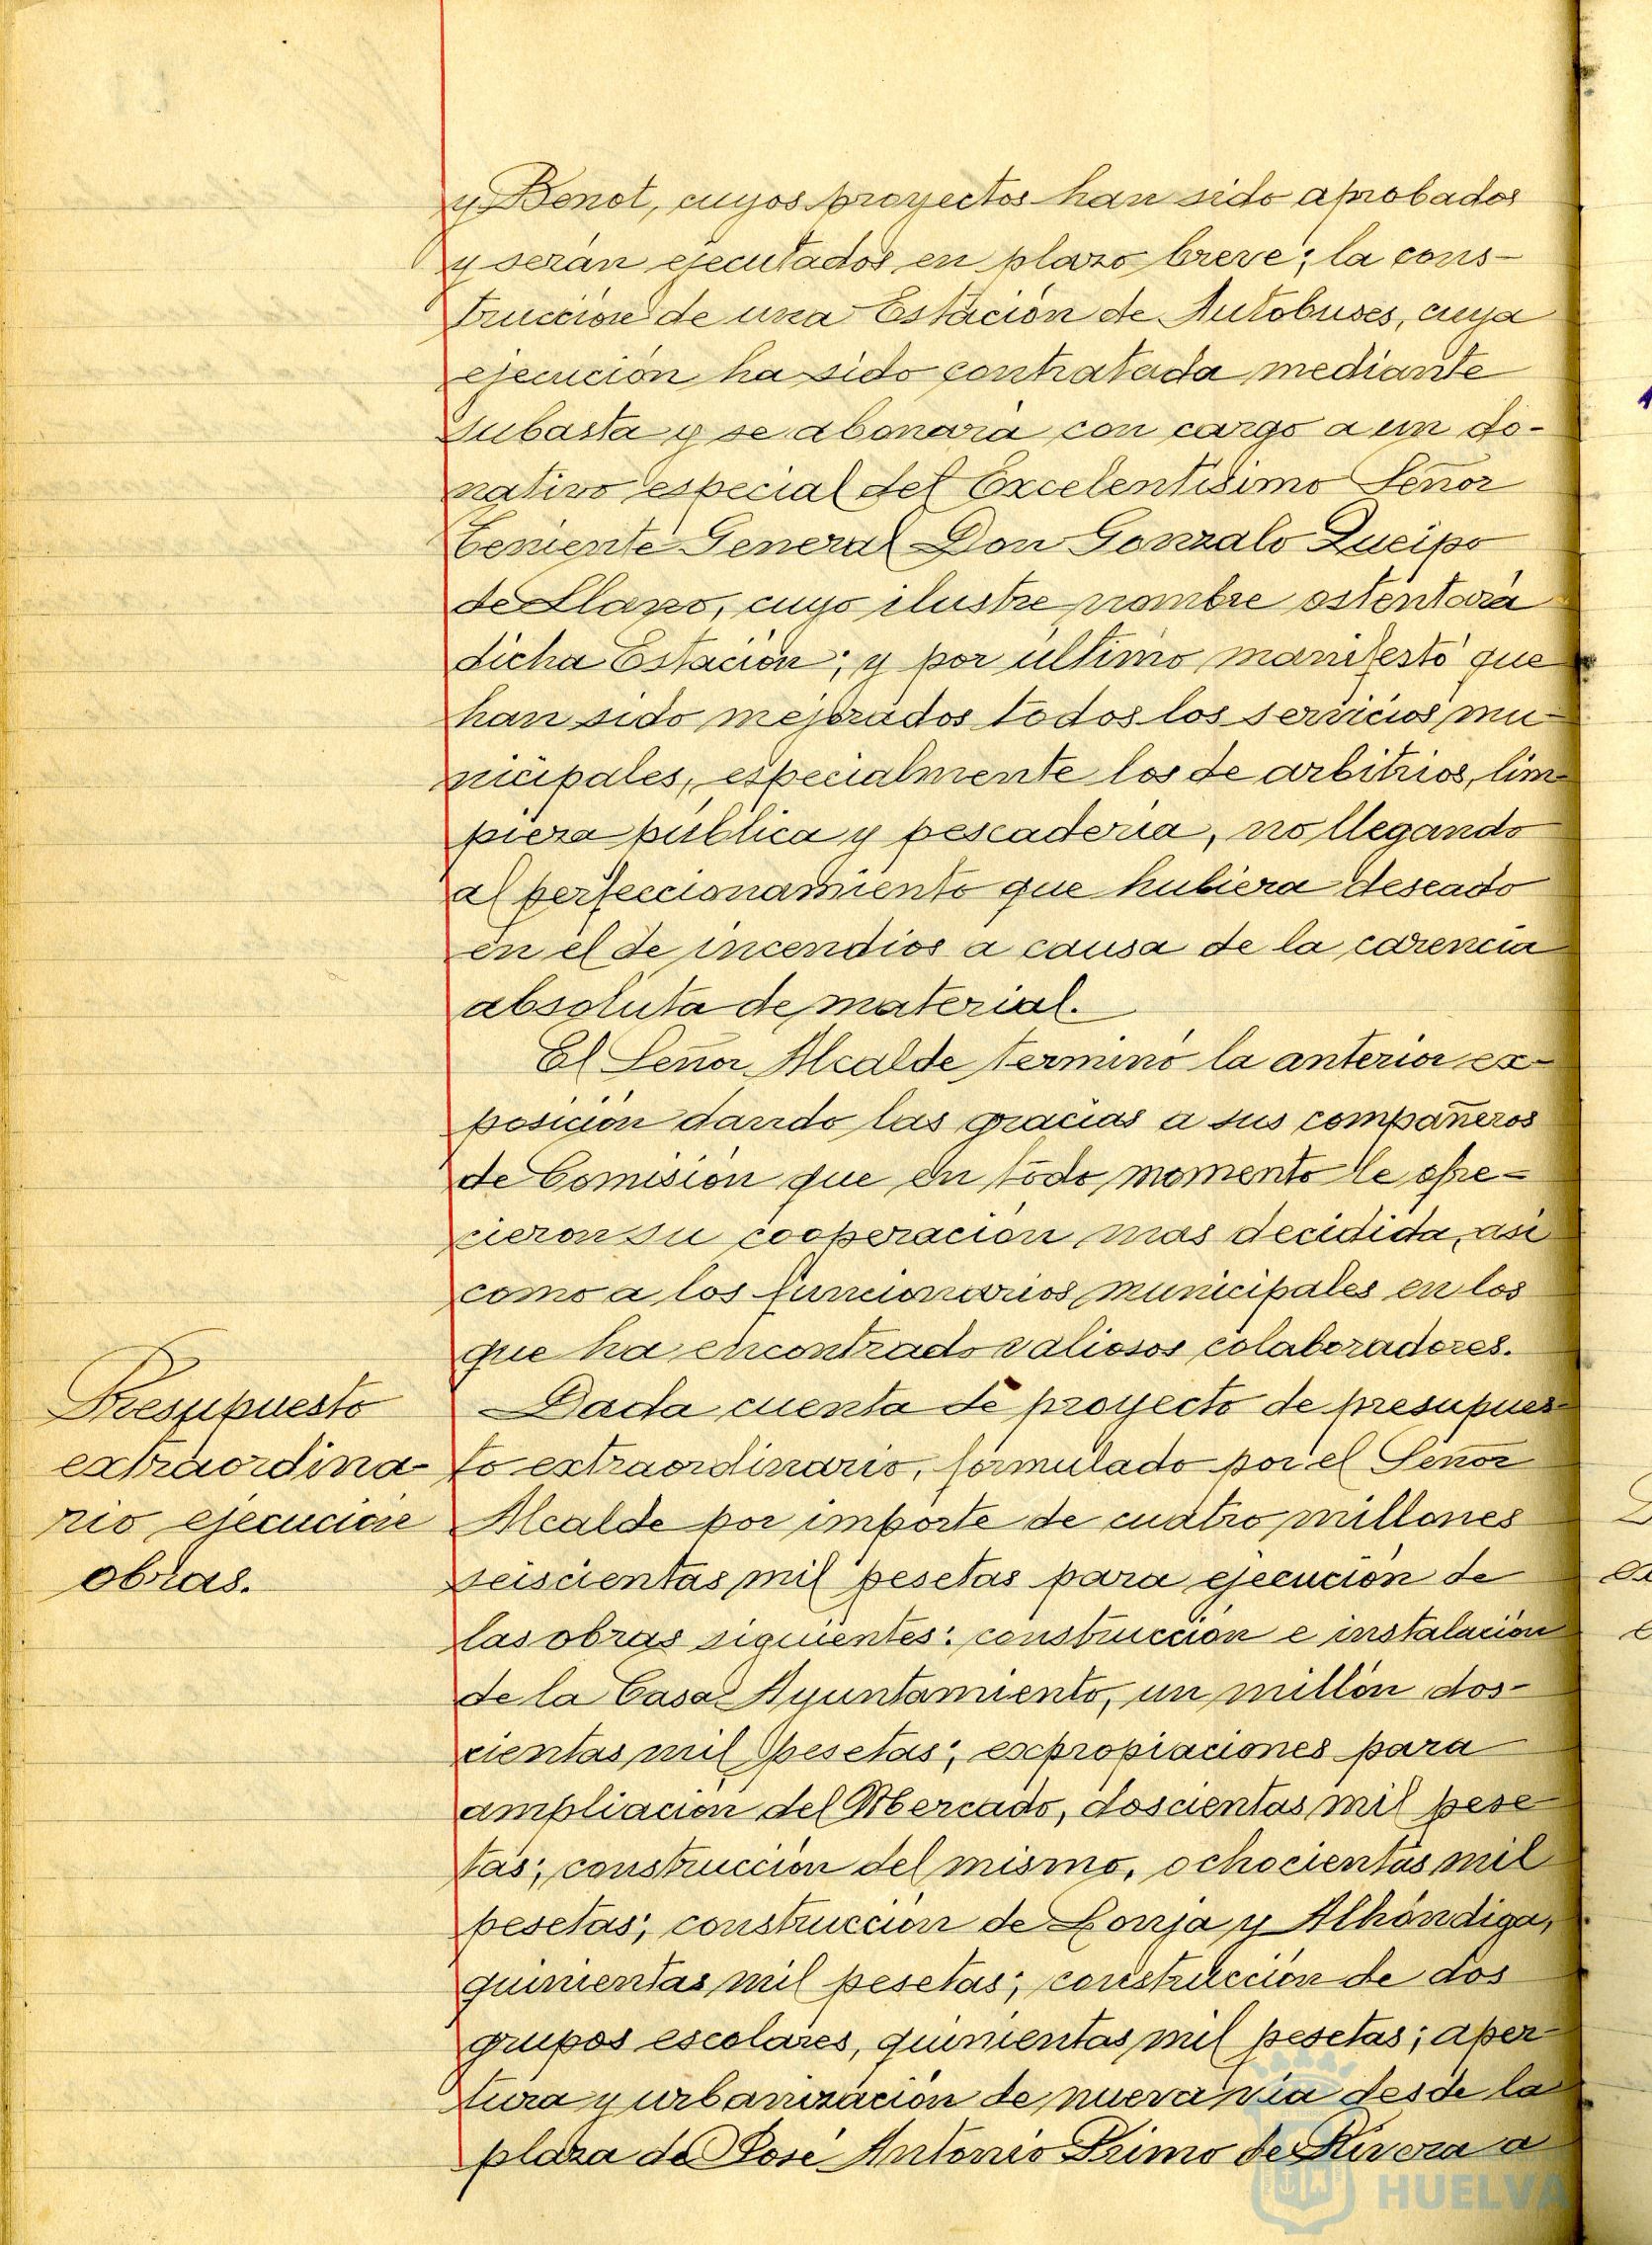 y Benot, cuyos proyectos han sido aprobados
y serán ejecutados en plazo breve; la cons-
trucción de una Estación de Autobuses, cuya
ejecución ha sido contratada mediante
subasta y se abonará con cargo a un do-
nativo especial del Excelentísimo Señor
Teniente General Don Gonzalo Queipo
de Llano, cuyo ilustre nombre ostentará
dicha Estación; y por último manifestó que
han sido mejorados todos los servicios mu-
nicipales, especialmente los de arbitrios, lim-
pieza pública y pescadería, no llegando
al perfeccionamiento que hubiera deseado
en el de incendios a causa de la carencia
absoluta de material.
El Señor Alcalde terminó la anterior ex-
posición dando las gracias a sus compañeros
de Comisión que en todo momento le ofre-
cieron su cooperación mas decidida, asi
como a los funcionarios municipales en los
que ha encontrado valiosos colaboradores.
Presupuesto
extraordina-
rio ejecución
obras.
Dada cuenta de proyecto de presupues-
to extraordinario, formulado por el Señor
Alcalde por importe de cuatro millones
seiscientas mil pesetas para ejecución de
las obras siguientes: construcción e instalación
de la Casa Ayuntamiento, un millón dos-
cientas mil pesetas; expropiaciones para
ampliación del Mercado, doscientas mil pese-
tas; construcción del mismo, ochocientas mil
pesetas; construcción de Lonja y Alhóndiga,
quinientas mil pesetas; construcción de dos
grupos escolares, quinientas mil pesetas; aper-
tura y urbanización de nueva vía desde la
plaza de José Antonio Primo de Rivera a
HUELVA